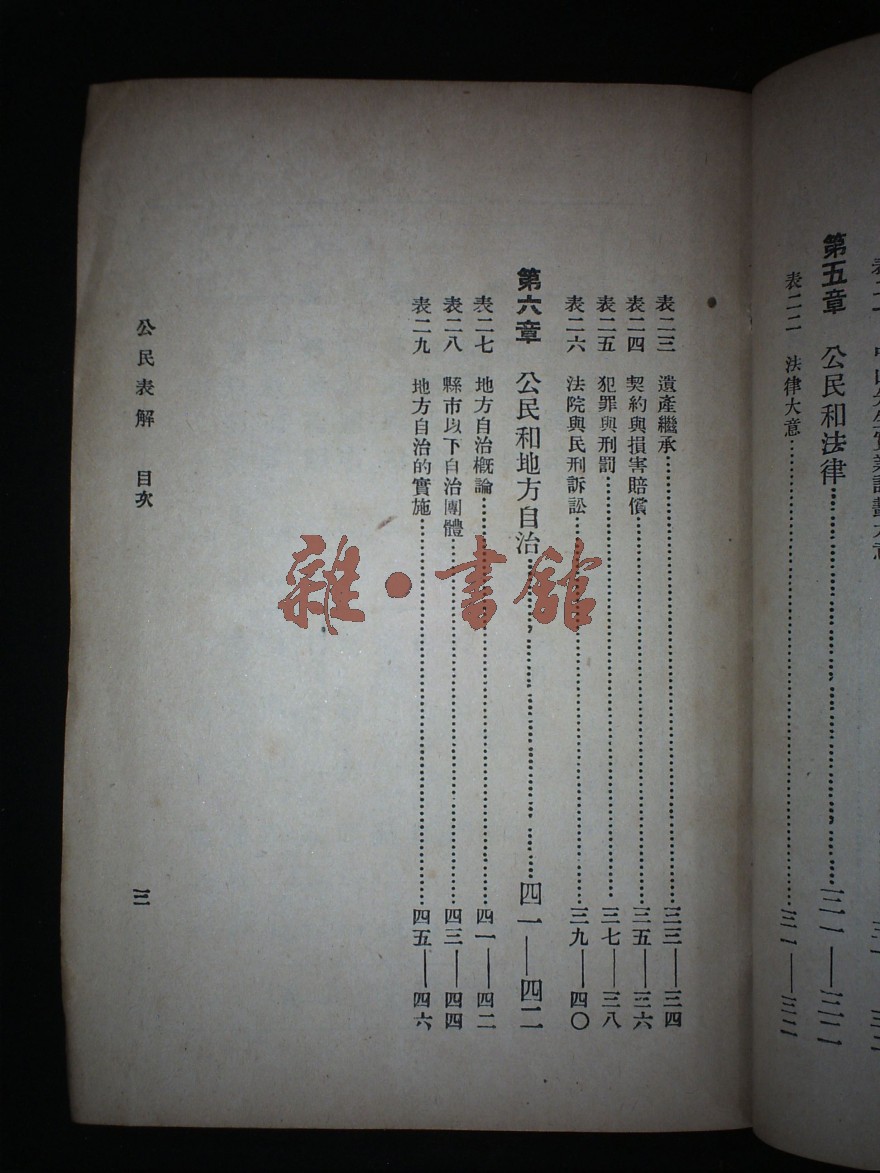 第五章　公民和法律……………………三一——三二
表二二　法律大意……………………三一——三二
表二三　遺產繼承……………………三三——三四
表二四　契約與損害賠償……………………三五——三六
表二五　犯罪與刑罰……………………三七——三八
表二六　法院與民刑訴訟……………………三九——四〇
第六章　公民和地方自治……………………四一——四二
表二七　地方自治概論……………………四一——四二
表二八　縣市以下自治團體……………………四三——四四
表二九　地方自治的實施……………………四五——四六
公民表解　目次
三
雜·書館